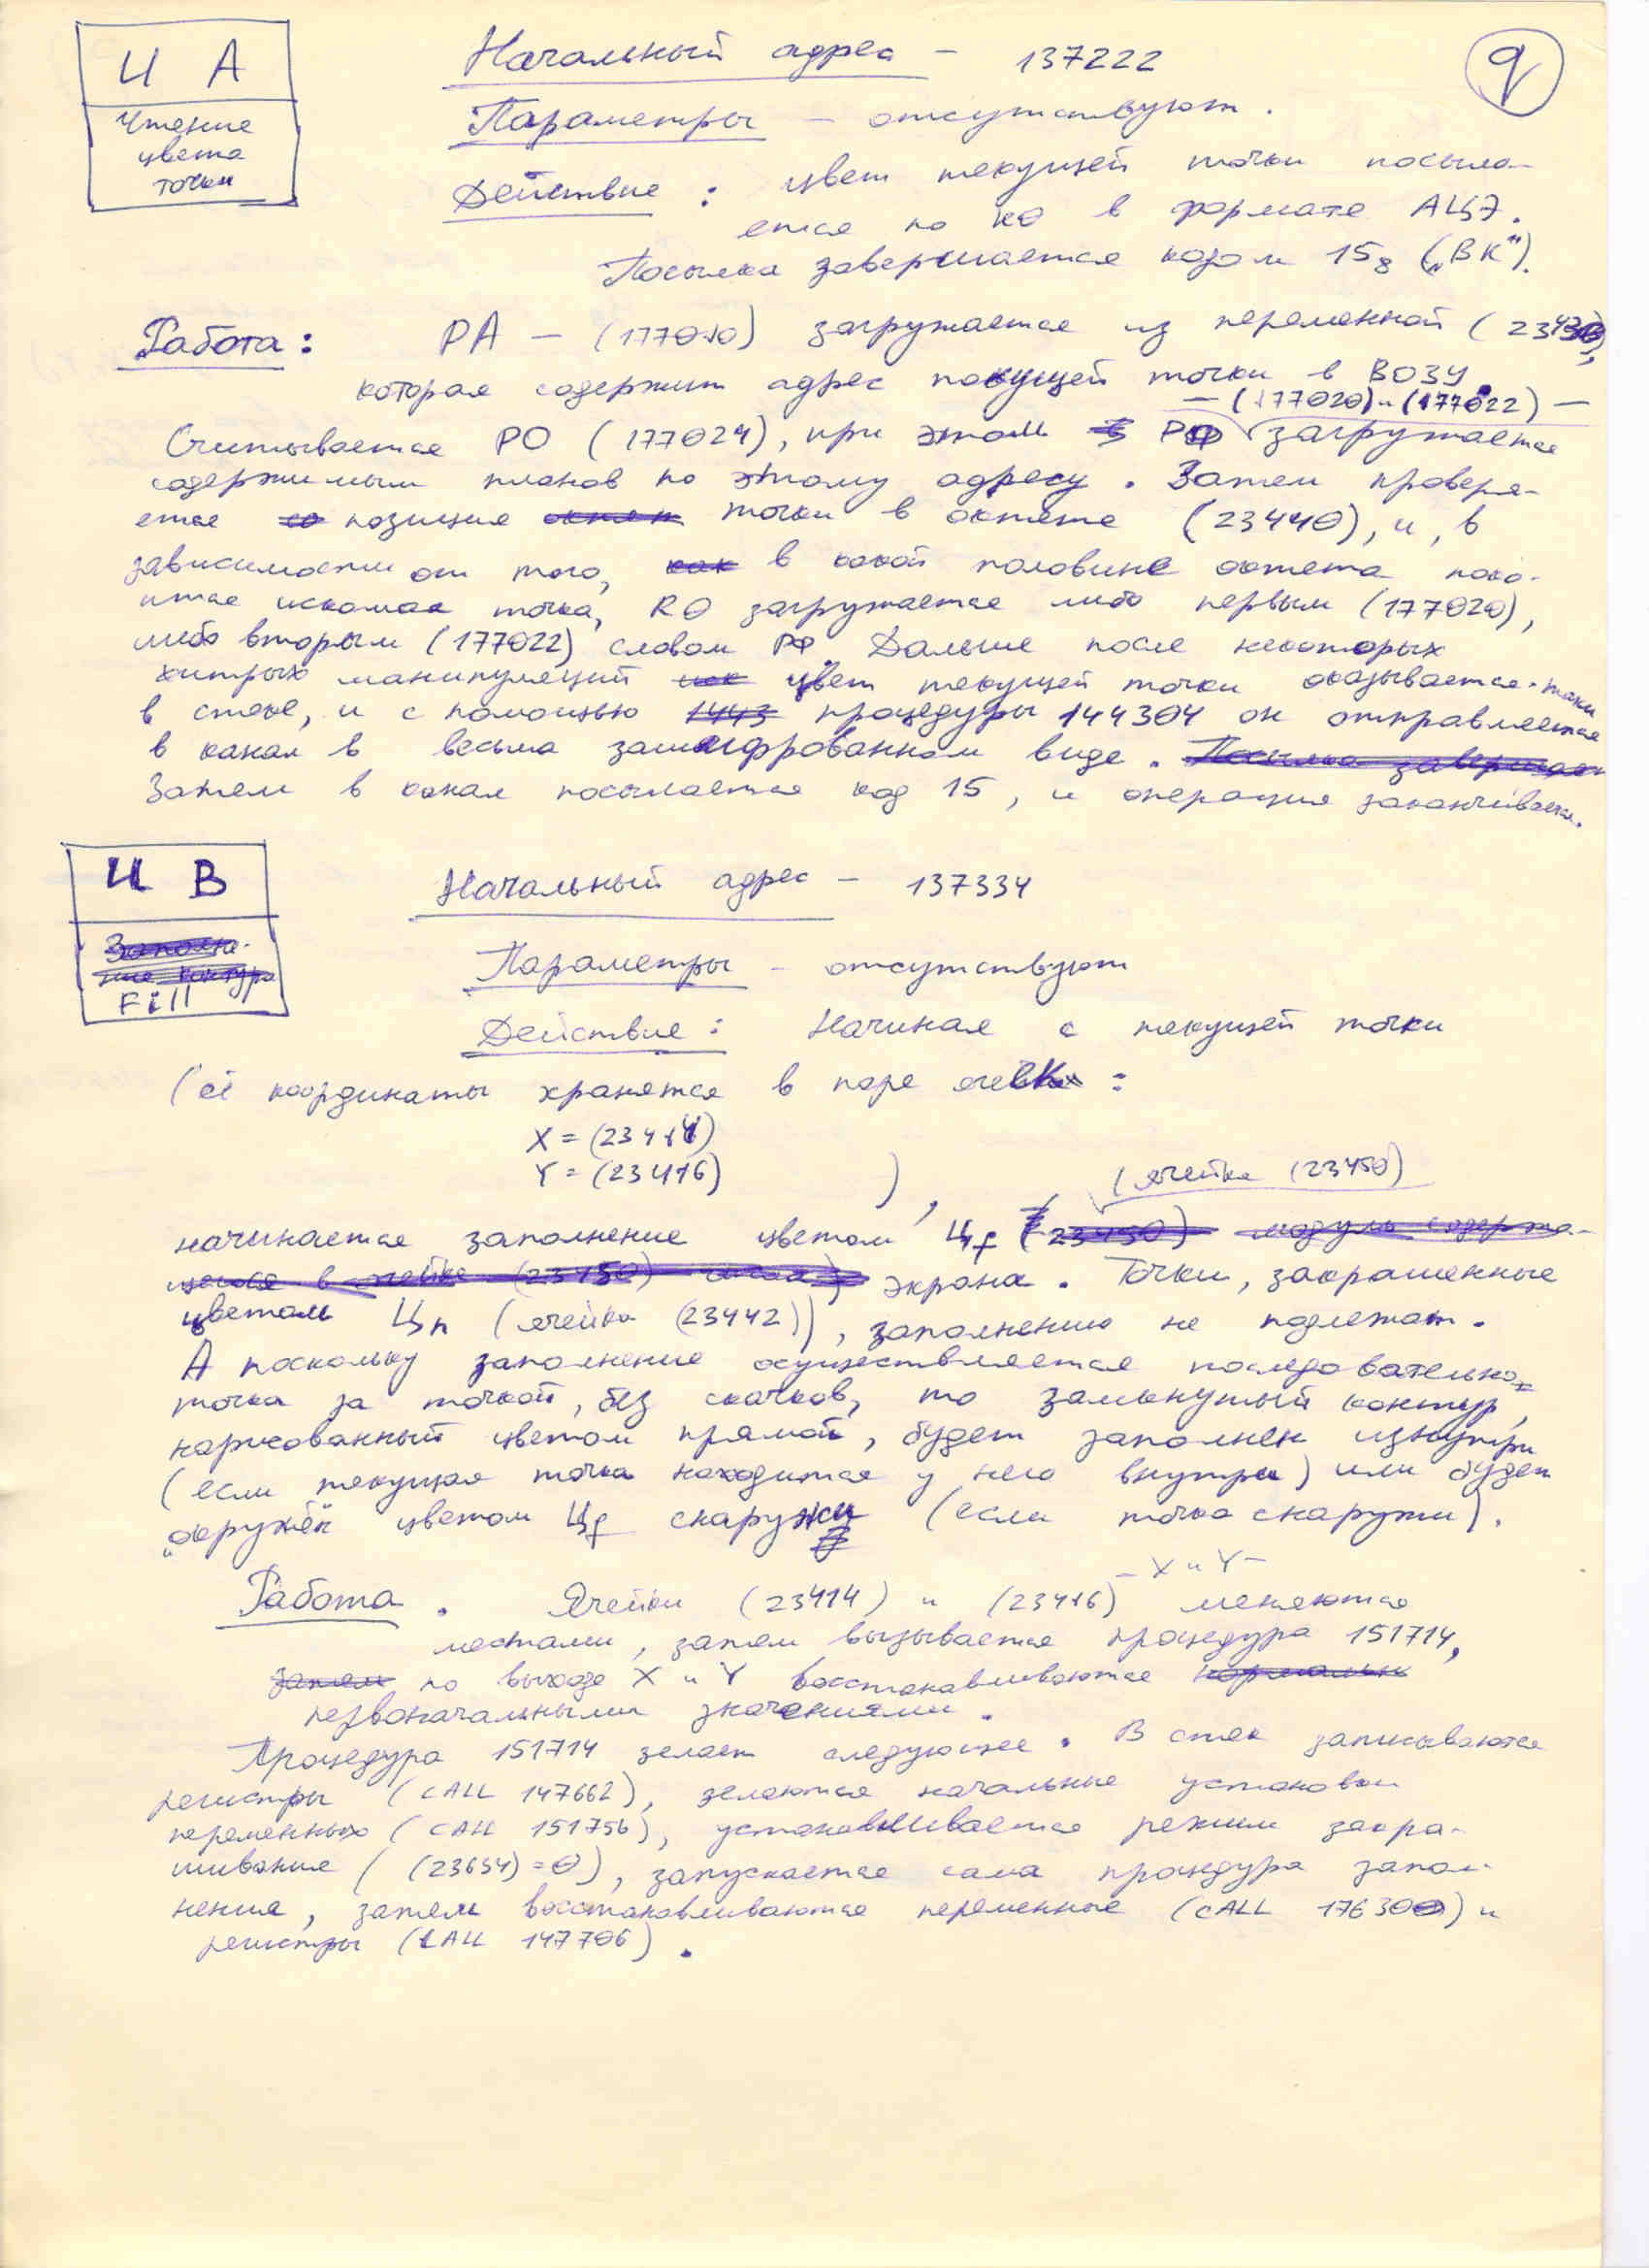 9
И А
Чтение
цвета
точки
Начальный адрес – 137222
Параметры – отсутствуют.
Действие : цвет текущей точки посыла-
ется по КО в формате АЦ37.
Посылка завершается кодом 15₈ („ВК").
Работа : РА – (177010) загружается из переменной
которая содержит адрес текущей точки в ВОЗУ.
– (177020) и (177022) –
Считывается РО (177024), при этом РФ загружается
содержимым планов по этому адресу. Затем проверя-
ется позиция точки в октете (23440), и, в
зависимости от того, в какой половине октета нахо-
дится искомая точка, R0 загружается либо первым (177020),
либо вторым (177022) словом РФ. Дальше после некоторых
хитрых манипуляций цвет текущей точки оказывается-таки
в стеке, и с помощью 1443 процедуры 144304 он отправляется
в канал в весьма зашифрованном виде. Посылка завершает
Затем в канал посылается код 15, и операция заканчивается.
И В
Заполне-
ние контура
Fill
Начальный адрес – 137334
Параметры – отсутствуют
Действие : Начиная с текущей точки
(её координаты хранятся в паре ячеек :
X = (23414)
Y = (23416)
),
(ячейка (23450)
начинается заполнение цветом Цf (23450) модуль содержа-
щегося в ячейке (23450) экрана. Точки, закрашенные
цветом Цп (ячейка (23442)), заполнению не подлежат.
А поскольку заполнение осуществляется последовательно,
точка за точкой, без скачков, то замкнутый контур,
нарисованный цветом прямой, будет заполнен изнутри
(если текущая точка находится у него внутри) или будет
„окружён цветом Цf снаружи (если точка снаружи).
– X и Y –
Работа. Ячейки (23414) и (23416) меняются
местами, затем вызывается процедура 151714,
затем по выходе X и Y восстанавливаются нормальн
первоначальными значениями.
Процедура 151714 делает следующее. В стек записываются
регистры (CALL 147662), делаются начальные установки
переменных (CALL 151756), устанавливается режим закра-
шивания ((23654)=0), запускается сама процедура запол-
нения, затем восстанавливаются переменные (CALL 176300) и
регистры (CALL 147706).